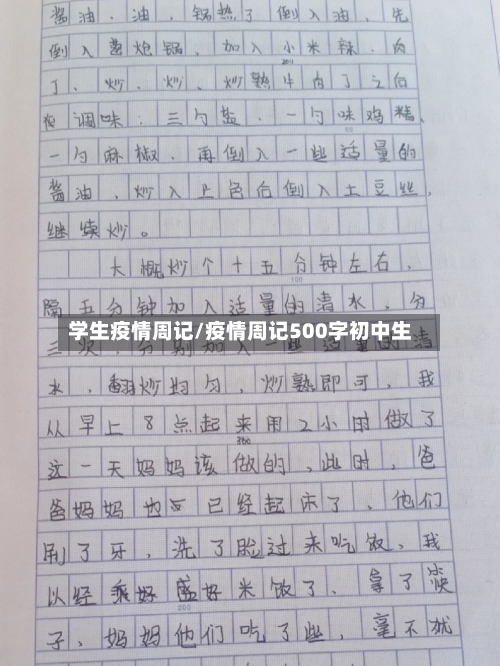 酱油．油．锅热了倒入油，先
倒入葱炝锅．加入小米辣．肉
丁、炒．炒．炒熟牛肉丁之后
调味：三勺盐．一勺味鸡精、
一勺麻椒．再倒入一些适量的
酱油．炒入上色后倒入土豆丝，
继续炒。
大概炒个十五分钟左右，
100
隔五分钟加入适量的清水，分
学生疫情周记/疫情周记500字初中生
三次，分别加入一些适量的清
水，翻炒均匀，炒熟即可，我
从早上8点起来用2小时做了
这一天妈妈该做的、此时，爸
爸妈妈也已经起床了、他们
刷了牙，洗了脸过来吃饭、我
以经乘好盛好米饭了、拿了筷
200
子、妈妈他们吃了些，毫不犹